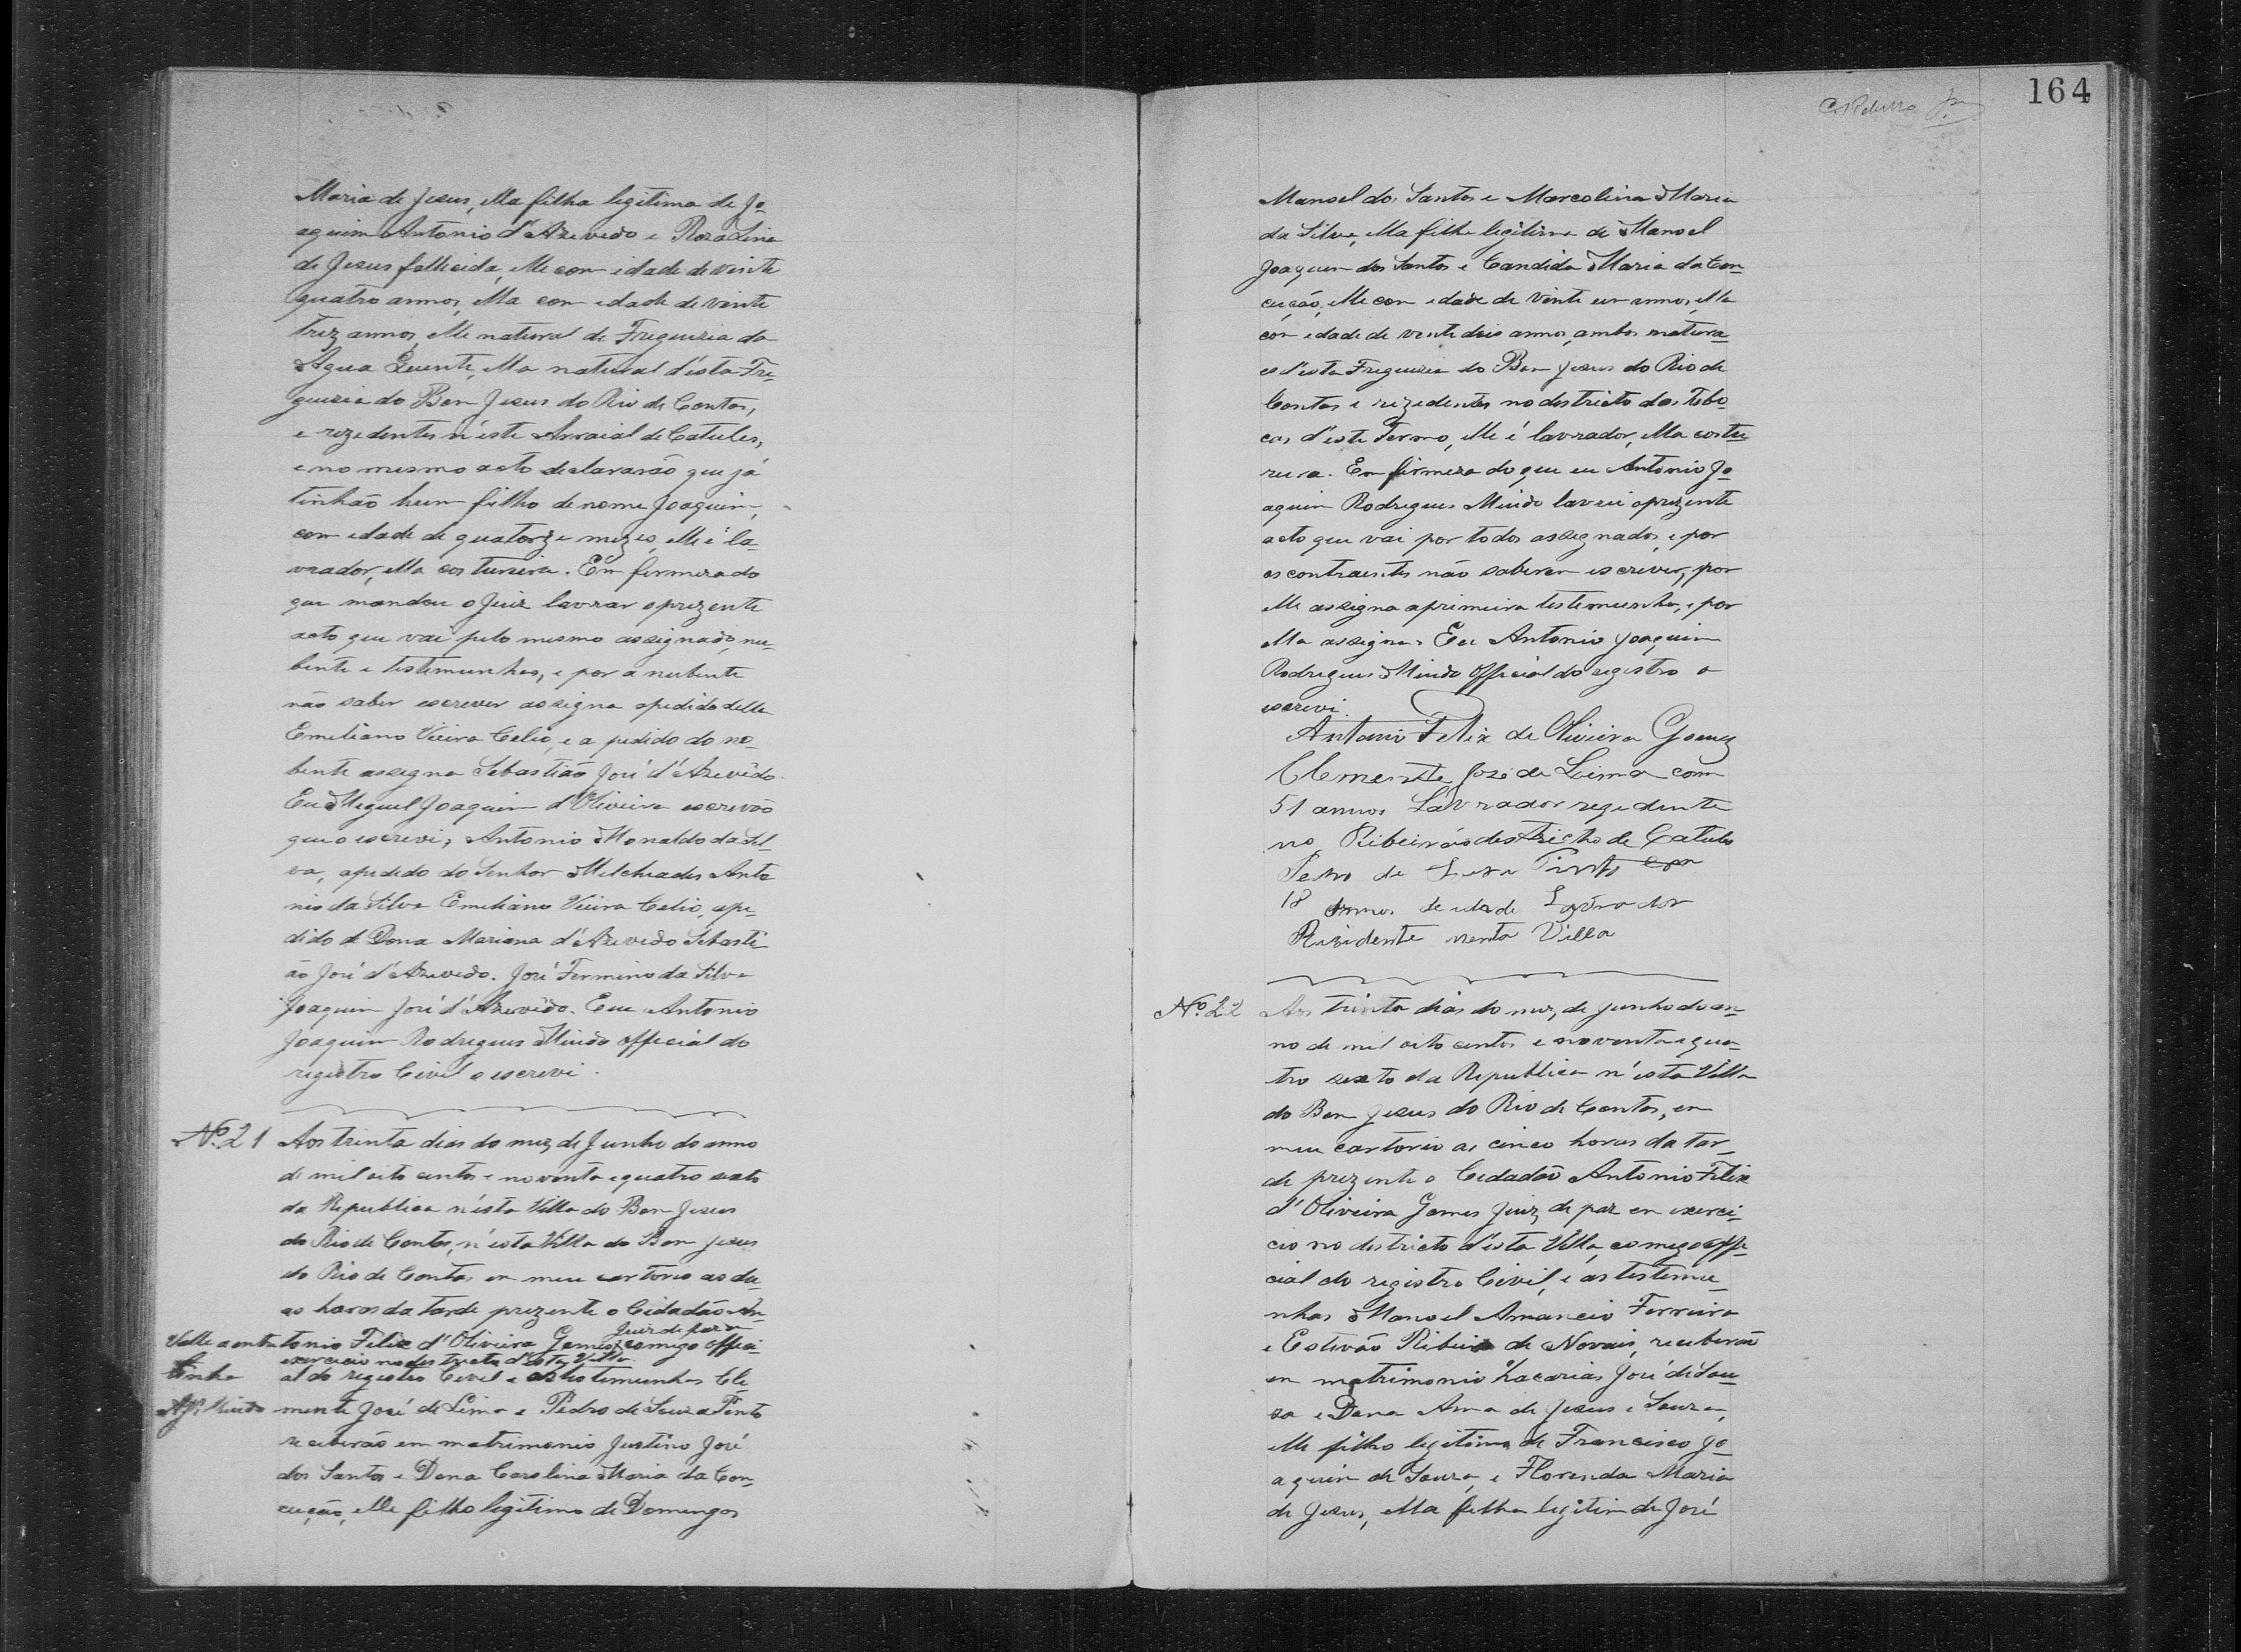 Maria de Jesus, ella filha legitima de Jo-
aquim Antonio d'Azevedo e Roza Lina
de Jesus fallicida, elle com idade de vinte
quatro annos, ella com idade de vinte
trez annos, elle natural de Freguezia da
Agua Quente, ella natural d'esta Fre-
guezia do Bom Jesus do Rio de Contas,
e rezedentes n'este Arraial de Catules,
e no mesmo acto declararão que já
tinhão hum filho de nome Joaquim,
com idade de quatorze mezes, elle é la-
vrador, ella costureira. Em firmeza do
que mandou o Juiz lavrar o prezente
acto que vai pelo mesmo assignado, nu-
bente e testemunhas, e por a nubente
não saber escrever assigna apedido della
Emiliano Vieira Celio, e a pedido do no-
bente assigna Sebastião José d'Azevêdo.
Eu Miguel Joaquim d'Oliveira escrevão
que o escrevi, Antonio Monaldo da Sil-
va, apedido do Senhor Melchiades Anto
nio da Silva Emiliano Vieira Celio, ape-
dido de Dona Mariana d'Azevedo Sebasti
ão José d'Azevedo. José Fermino da Silva
Joaquim José d'Azevêdo. Eu Antonio
Joaquim Rodrigues Miudo official do
registro Civil o escrevi.
Nº. 21 Aos trinta dias do mez de Junho do anno
de mil oito centos e noventa e quatro sexto
da Republica n'ésta Villa do Bom Jesus
do Rio de Contas, n'esta Villa do Bom Jesus
do Rio de Contas em meu cartorio as du-
as horas da tarde prezente o Cidadão An-
Juiz de paz em
Valle a entre tonio Felix d'Oliveira Gomes, comigo offici-
exercicio no destricto d'esta Villa
linha al do registro Civil e as testemunhas Cle-
A. J. R. Miudo mente José de Lima e Pedro de Souza Pinto
receberão em matrimonio Justino José
dos Santos e Dona Carolina Maria da Con-
ceição, elle filho legitimo de Domingos
164
Manoel dos Santos e Marcolina Maria
da Silva, ella filha legitima de Manoel
Joaquim dos Santos e Candida Maria da Con-
ceição, elle com idade de vinte um annos, ella
com idade de vente dois annos, ambos natura-
es d'esta Freguezia do Bom Jesus do Rio de
Contas e rezedentes no destricto das Tabo-
cas d'este Termo, elle é lavrador, ella costu-
reira. Em firmeza do que eu Antonio Jo-
aquim Rodrigues Miudo lavrei o prezente
acto que vai por todos assegnados, e por
os contraentes não saberem escrever, por
elle assigna a primeira testemunha, e por
ella assigna. Eu Antonio Joaquim
Rodrigues Miudo Official do registro o
escrevi.
Antonio Felix de Oliveira Gomes
Clemente José de Lima com
51 annos Lavrador rezedente
no Ribeirão destricto de Catules
Pedro de Souza Pinto com
18 annos de idade Lavrador
Rizidente nesta Villa
Nº. 22 Aos trinta dias do mez, de Junho do an-
no de mil oito centos e noventa e qua-
tro sexto da Republica n'esta Villa
do Bom Jesus do Rio de Contas, em
meu cartorio as cinco horas da tar-
de prezente o Cidadão Antonio Felix
d'Oliveira Gomes Juiz de paz em exerci-
cio no destricto d'esta Villa, comego offi-
cial do registro Civil, e as testemu-
nhas Manoel Amancio Ferreira
e Estevão Ribeiro de Novais, receberão
em matrimonio Zacarias José de Sou-
za e Dona Anna de Jesus e Souza,
elle filho legitimo de Francisco Jo-
aquim de Souza, e Florinda Maria
de Jesus, ella filha legitim de José